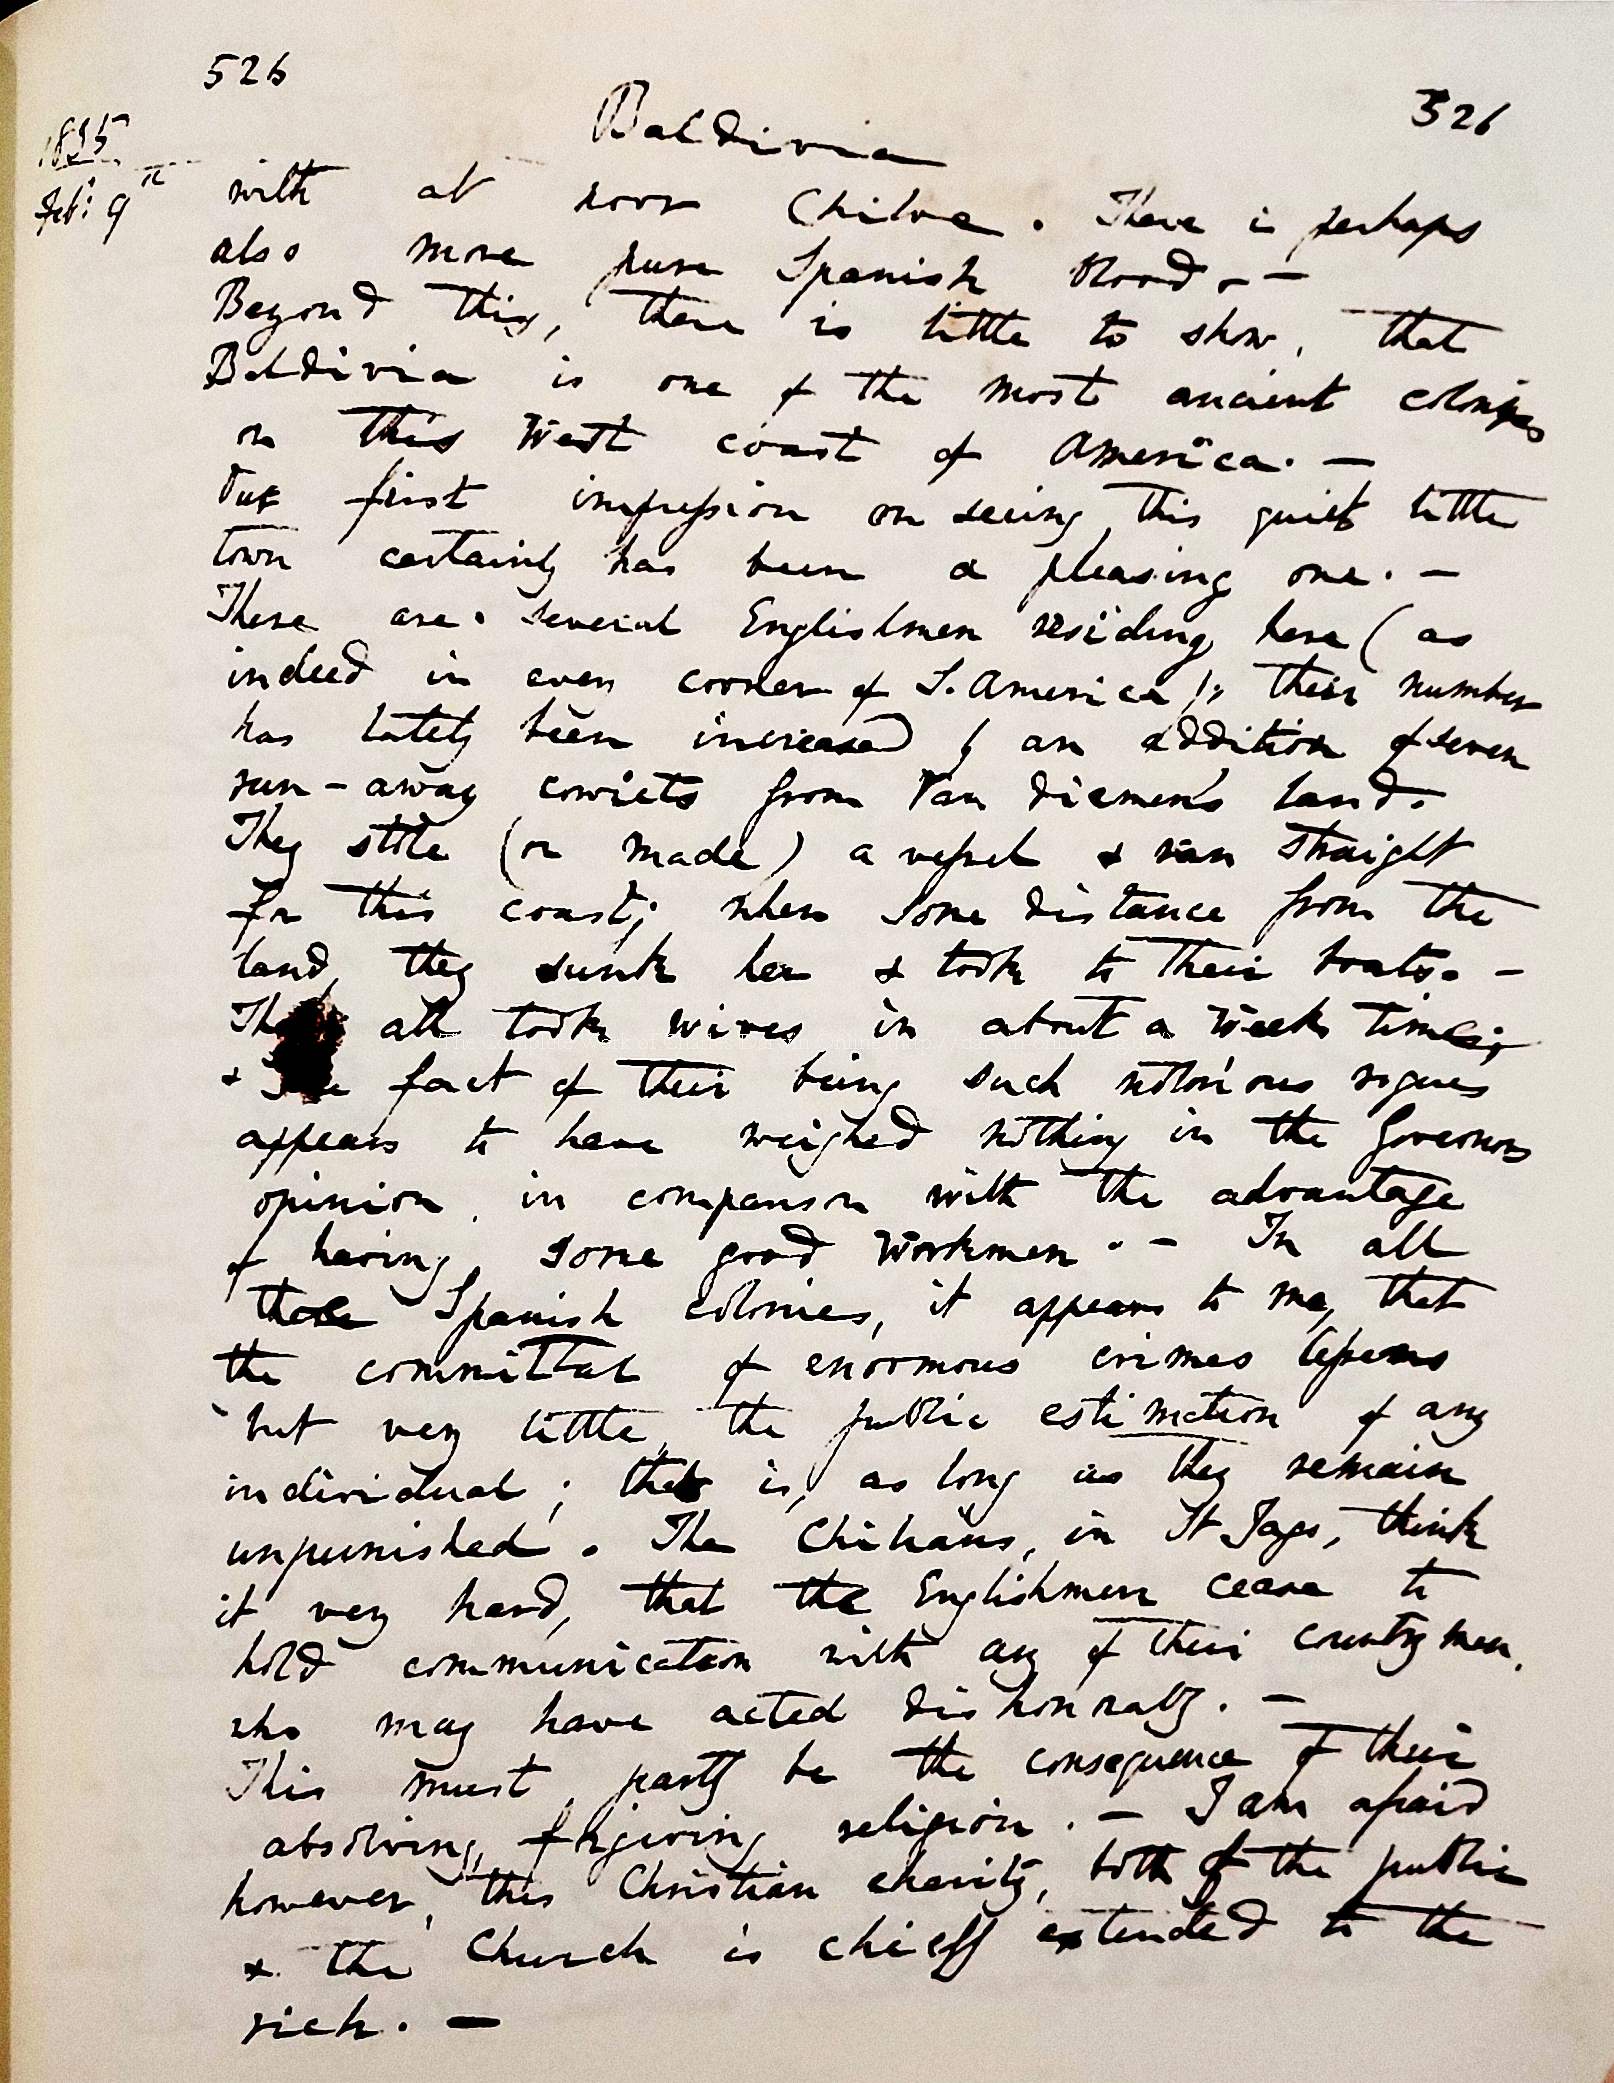 526
Baldivia
526
1835
Feb: 9th
with at poor Chiloe. There is perhaps
also more pure Spanish blood. —
Beyond this, there is little to show, that
Baldivia is one of the most ancient colonies
on this West coast of America. —
Our first impression on seeing this quiet little
town certainly has been a pleasing one. —
There are several Englishmen residing here (as
indeed in every corner of S. America); their number
has lately been increased by an addition of seven
run-away convicts from Van Diemen's land.
They stole (or made) a vessel & ran straight
for this coast; when some distance from the
land, they sunk her & took to their boats. —
They all took wives in about a week time;
& the fact of their being such notorious rogues
appears to have weighed nothing in the Governors
opinion, in comparison with the advantage
of having some good workmen. — In all
these Spanish colonies, it appears to me, that
the committal of enormous crimes lessens
but very little, the public estimation of any
individual; that is, as long as they remain
unpunished. The Chilians, in St Jago, think
it very hard, that the Englishmen cease to
hold communication with any of their countrymen,
who may have acted dishonorably. —
This must partly be the consequence of their
absolving, forgiving religion. — I am afraid
however, this Christian charity, both of the public
& the Church is chiefly extended to the
rich. —